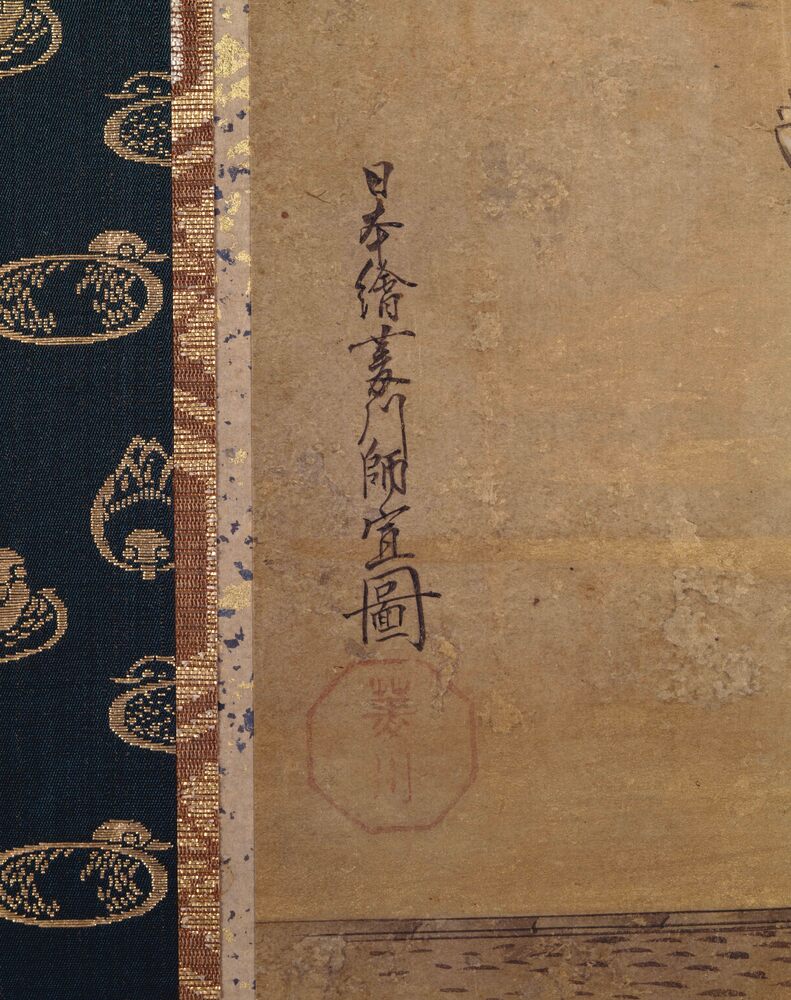 日本繪菱川師宣圖
菱川